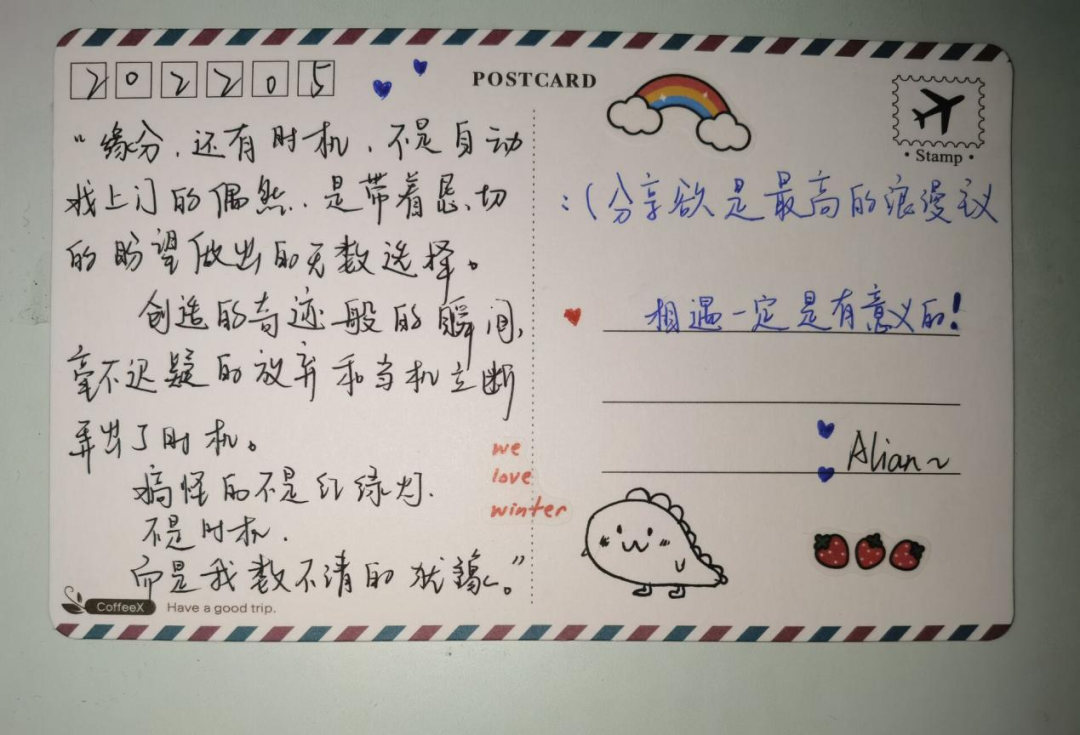 202205
POSTCARD
Stamp
“缘分，还有时机，不是自动
找上门的偶然，是带着恳切
的盼望做出的无数选择。
创造的奇迹般的瞬间，
毫不迟疑的放弃和当机立断
弄出了时机。
搞怪的不是红绿灯.
不是时机.
而是我数不清的犹豫。”
:(分享欲是最高的浪漫主义
相遇一定是有意义的!
we
love
winter
Alian~
CoffeeX
Have a good trip.